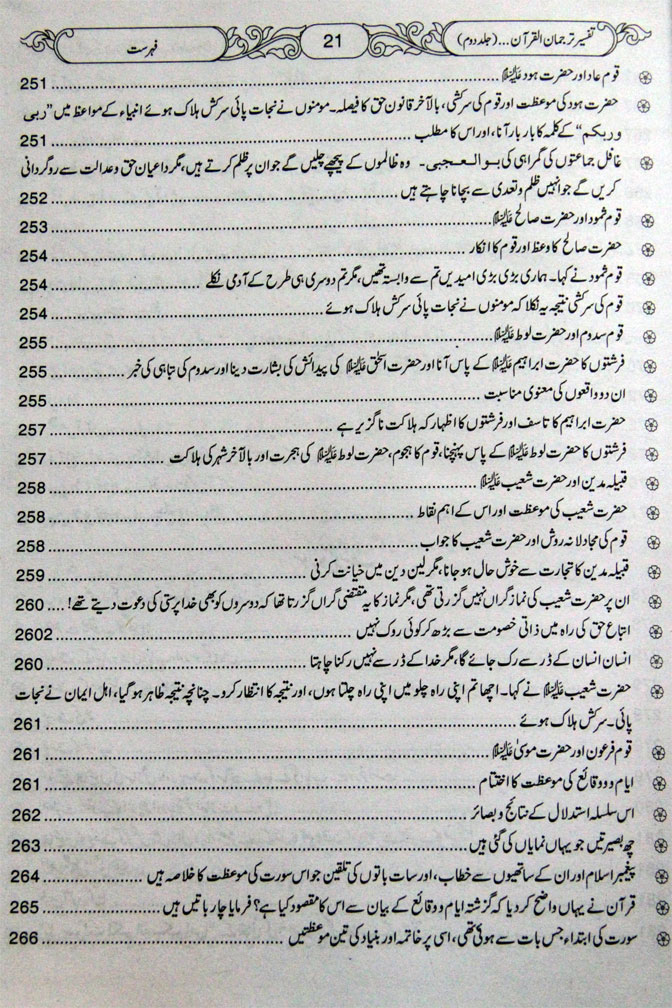 تفسیر ترجمان القرآن...(جلد دوم) 21 فہرست
قوم عاد اور حضرت ہود علیہ السلام ........ 251
حضرت ہود کی موعظت اور قوم کی سرکشی، بالآخر قانون حق کا فیصلہ۔ مومنوں نے نجات پائی سرکش ہلاک ہوئے انبیاء کے مواعظ میں ”ربی
وربکم“ کے کلمہ کا بار بار آنا، اور اس کا مطلب ........ 251
غافل جماعتوں کی گمراہی کی بوالعجبی۔ وہ ظالموں کے پیچھے چلیں گے جو ان پر ظلم کرتے ہیں، مگر داعیان حق وعدالت سے روگردانی
کریں گے جو انہیں ظلم و تعدی سے بچانا چاہتے ہیں ........ 252
قوم ثمود اور حضرت صالح علیہ السلام ........ 253
حضرت صالح کا وعظ اور قوم کا انکار ........ 254
قوم ثمود نے کہا۔ ہماری بڑی بڑی امیدیں تم سے وابستہ تھیں، مگر تم دوسری ہی طرح کے آدمی نکلے ........ 254
قوم کی سرکشی نتیجہ یہ نکلا کہ مومنوں نے نجات پائی سرکش ہلاک ہوئے ........ 254
قوم سدوم اور حضرت لوط علیہ السلام ........ 255
فرشتوں کا حضرت ابراہیم علیہ السلام کے پاس آنا اور حضرت اسحٰق علیہ السلام کی پیدائش کی بشارت دینا اور سدوم کی تباہی کی خبر ........ 255
ان دو واقعوں کی معنوی مناسبت ........ 255
حضرت ابراہیم کا تاسف اور فرشتوں کا اظہار کہ ہلاکت ناگزیر ہے ........ 257
فرشتوں کا حضرت لوط علیہ السلام کے پاس پہنچنا، قوم کا ہجوم، حضرت لوط علیہ السلام کی ہجرت اور بالآخر شہر کی ہلاکت ........ 257
قبیلہ مدین اور حضرت شعیب علیہ السلام ........ 258
حضرت شعیب کی موعظت اور اس کے اہم نقاط ........ 258
قوم کی مجادلانہ روش اور حضرت شعیب کا جواب ........ 258
قبیلہ مدین کا تجارت سے خوش حال ہو جانا، مگر لین دین میں خیانت کرنی ........ 259
ان پر حضرت شعیب کی نماز گراں نہیں گزرتی تھی، مگر نماز کا یہ مقتضی گراں گزرتا تھا کہ دوسروں کو بھی خدا پرستی کی دعوت دیتے تھے! .... 260
اتباع حق کی راہ میں ذاتی خصومت سے بڑھ کر کوئی روک نہیں ........ 2602
انسان انسان کے ڈر سے رک جائے گا، مگر خدا کے ڈر سے نہیں رکنا چاہتا ........ 260
حضرت شعیب علیہ السلام نے کہا۔ اچھا تم اپنی راہ چلو میں اپنی راہ چلتا ہوں، اور نتیجہ کا انتظار کرو۔ چنانچہ نتیجہ ظاہر ہو گیا، اہل ایمان نے نجات
پائی۔ سرکش ہلاک ہوئے ........ 261
قوم فرعون اور حضرت موسیٰ علیہ السلام ........ 261
ایام و وقائع کی موعظت کا اختتام ........ 261
اس سلسلہ استدلال کے نتائج و بصائر ........ 262
چھ بصیرتیں جو یہاں نمایاں کی گئی ہیں ........ 263
پیغمبر اسلام اور ان کے ساتھیوں سے خطاب، اور سات باتوں کی تلقین جو اس سورت کی موعظت کا خلاصہ ہیں ........ 264
قرآن نے یہاں واضح کر دیا کہ گزشتہ ایام و وقائع کے بیان سے اس کا مقصود کیا ہے؟ فرمایا چار باتیں ہیں ........ 265
سورت کی ابتداء جس بات سے ہوئی تھی، اسی پر خاتمہ اور بنیاد کی تین موعظتیں ........ 266